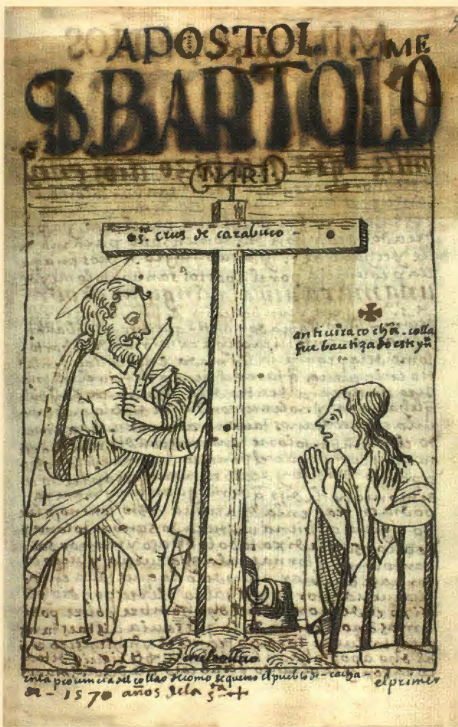 APOSTOL. ME
S. BARTOLO
INRI
s.ta crus de carabuco -
anti uira cocha. colla
fue bautizado este yn.o
en la prouincia del collao de como se quemo el pueblo de - cacha -
- 1570 años de la s.ta +
el primer